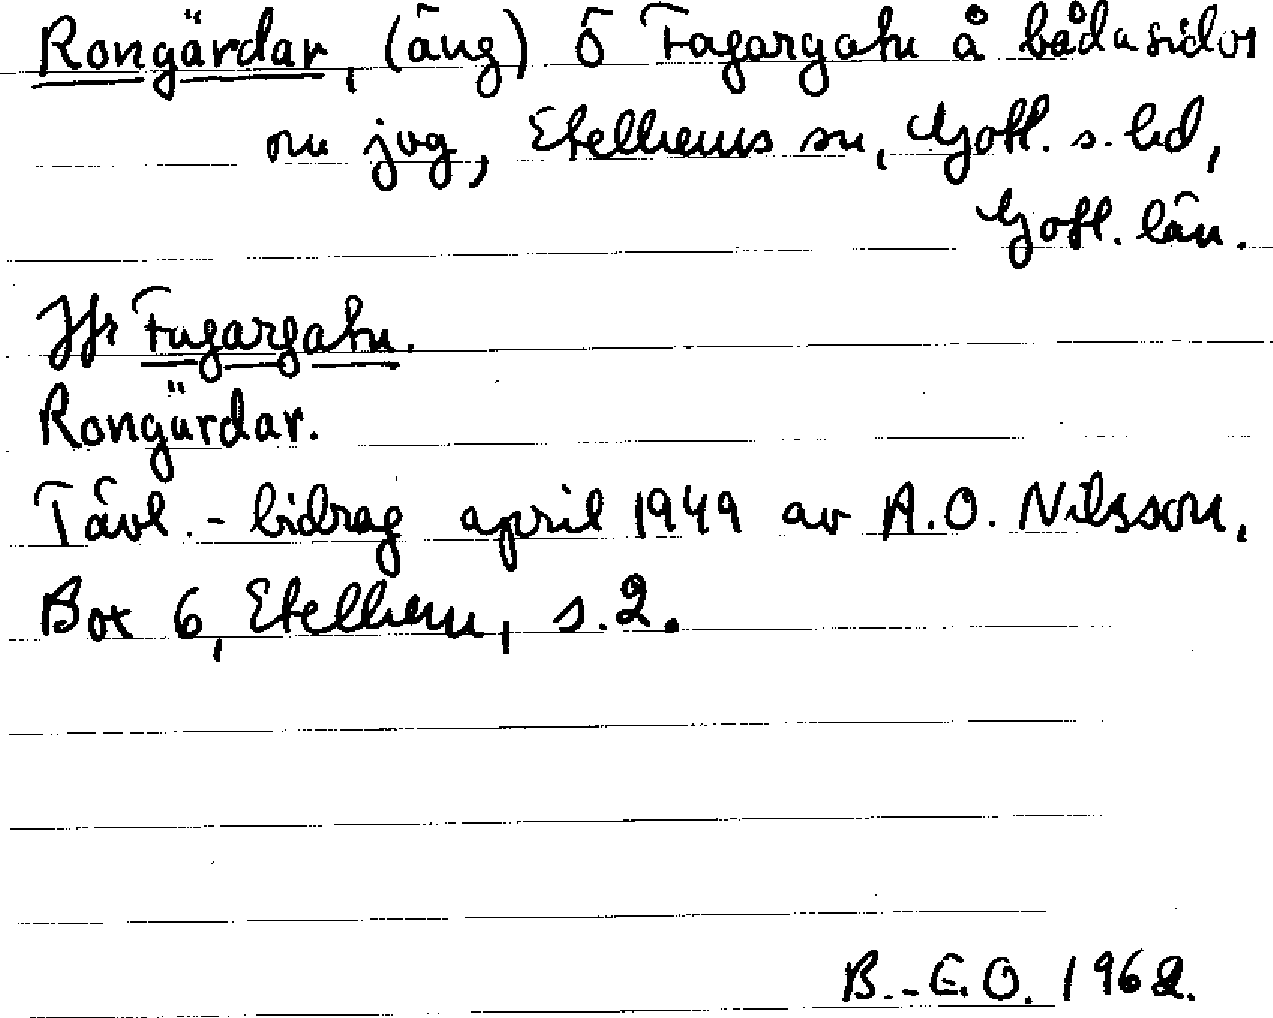 Rongärdar, (äng) Ö Fagargatu å båda sidor
om jvg, Etelhems sn, Gotl. s. hd,
Gotl. län.
Jfr Fagargatu.
Rongärdar.
Tävl.-bidrag april 1949 av A.O. Nilsson,
Box 6, Etelhem, s. 2.
B.-E.O. 1962.